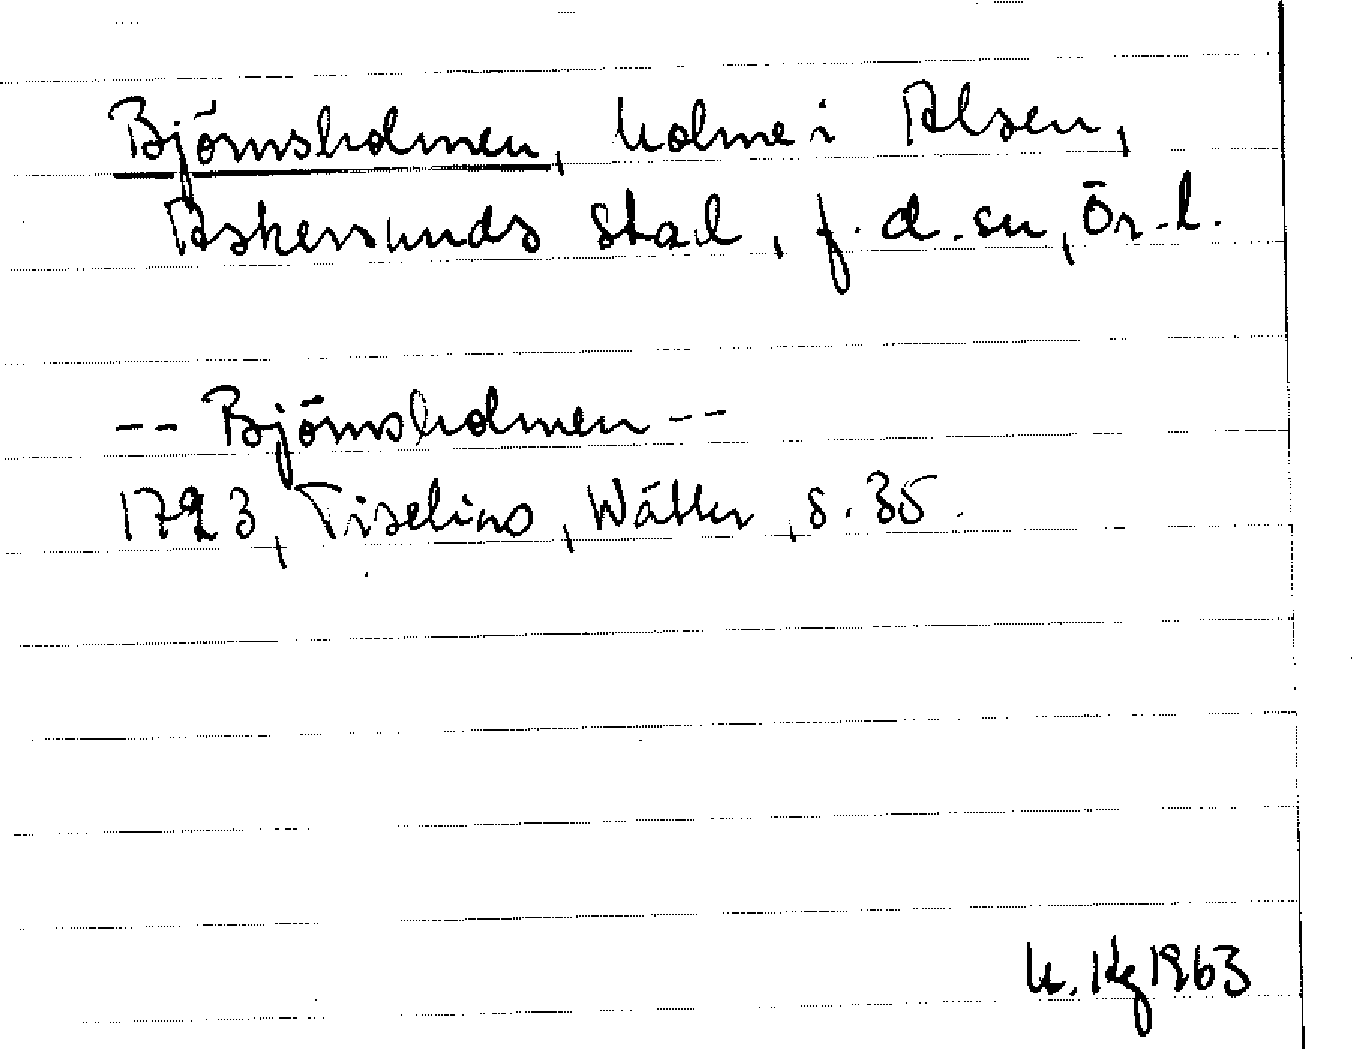 Björnsholmen, holme i Alsen,
Askersunds stad, f.d. sn, Ör.l.
-- Björnsholmen --
1723, Tiselius, Wätter, s. 35.
K. Kg 1963